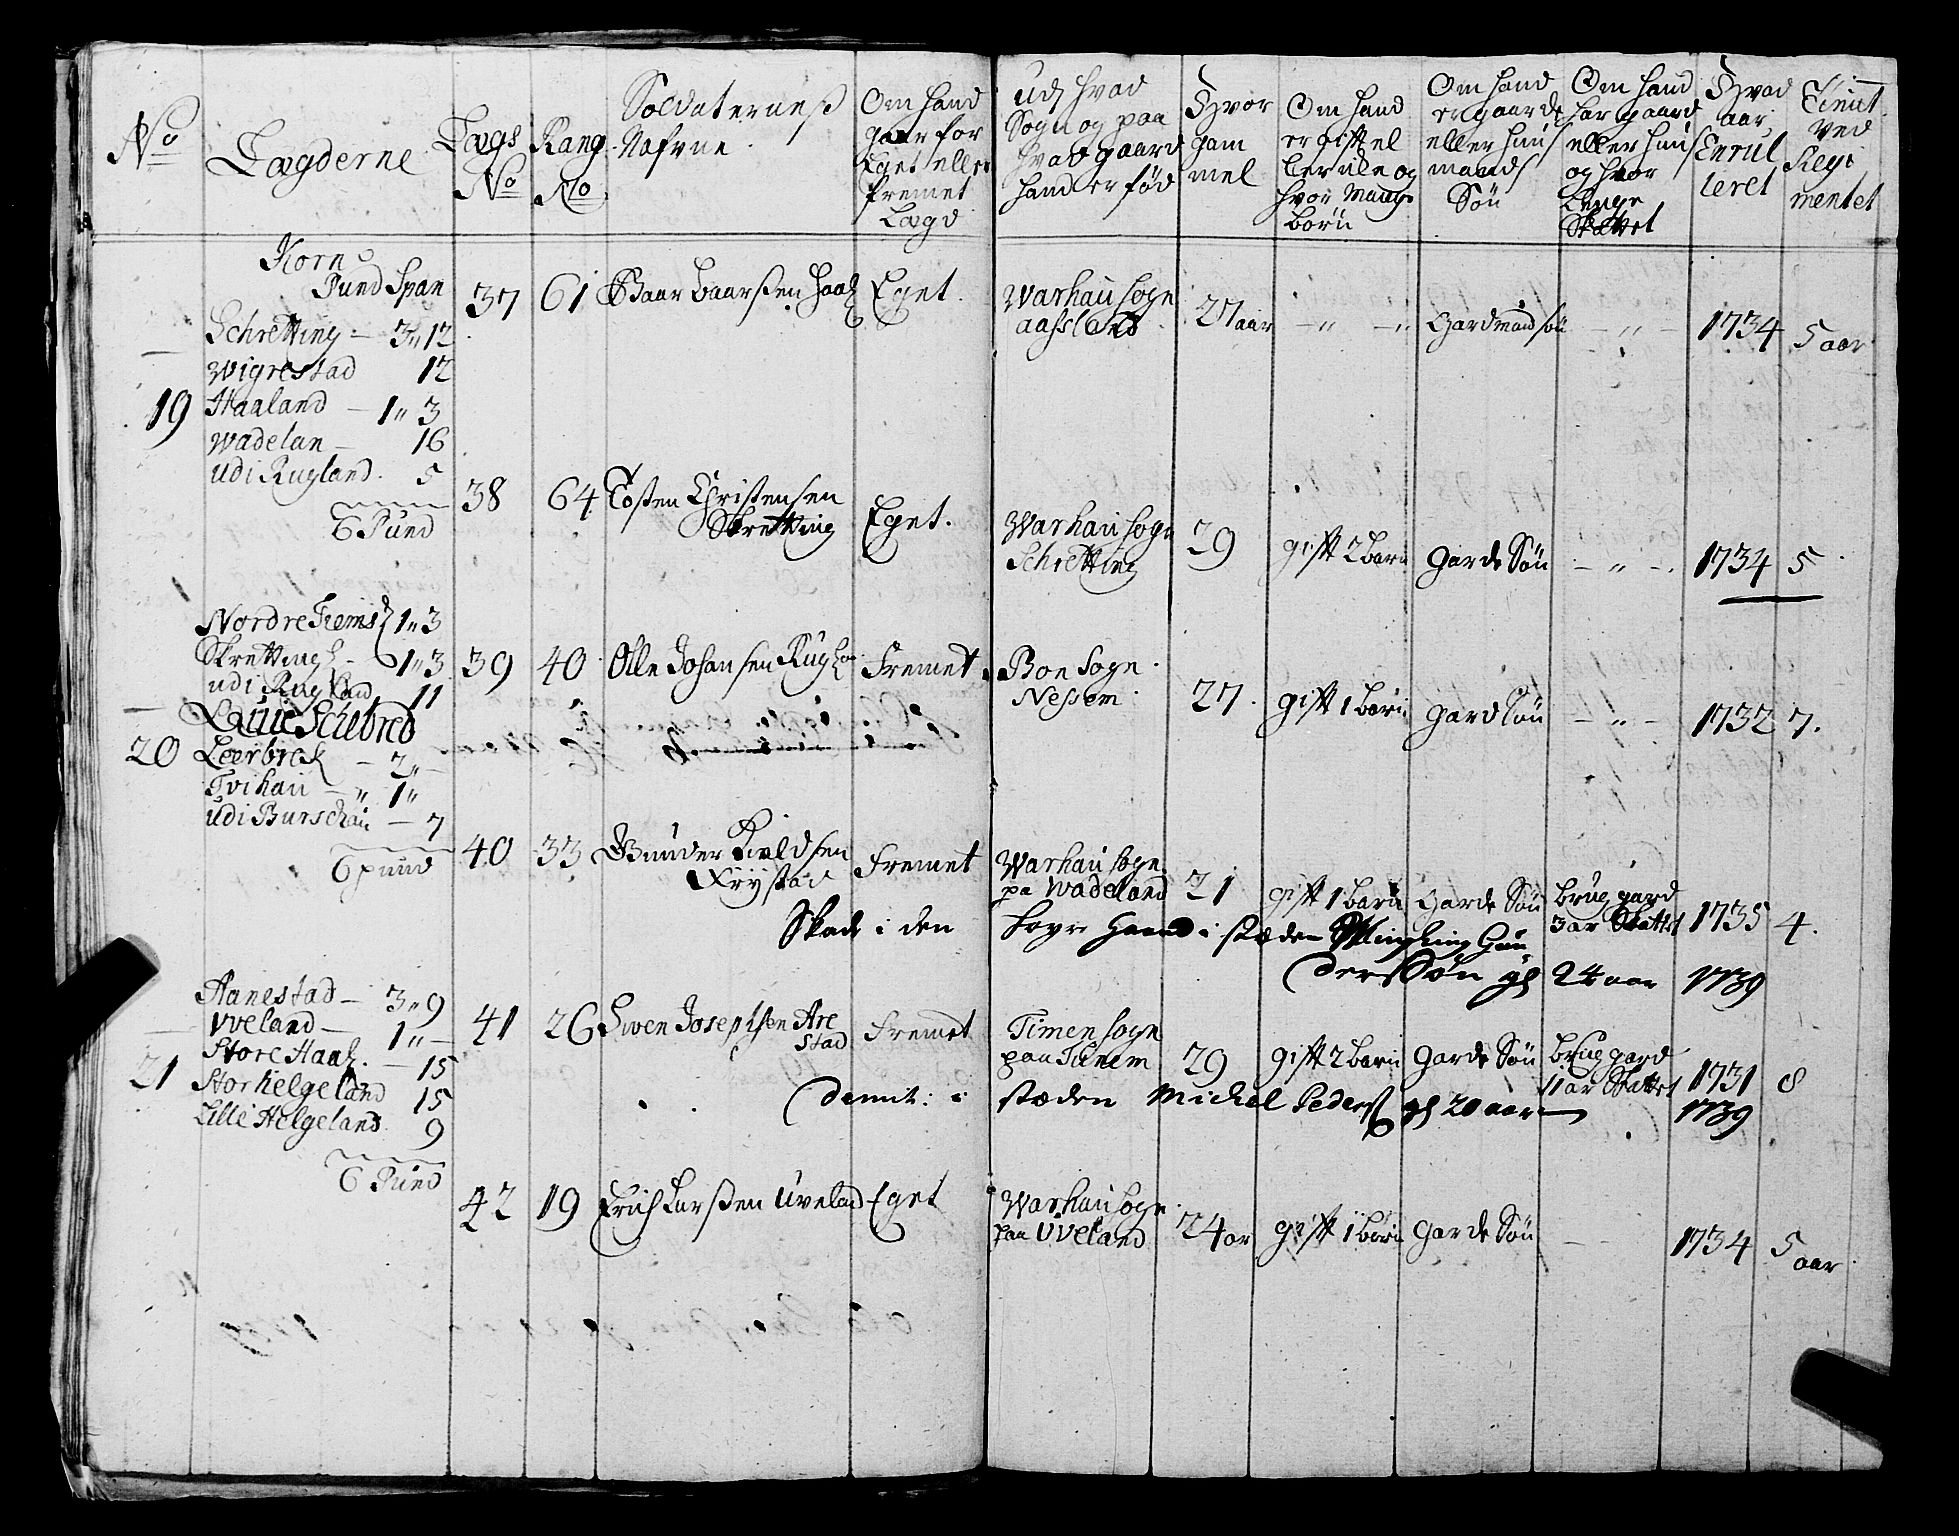 No
Lægderne
Lægs No
Rang No
Soldaternes Nafne
Om hand gaar for Eget eller fremet Lægd
Udj hvad Sogn og paa hvad gaard hand er fød
Hvor gam mel
Om hand er gift el ler ei og hvor Mange Börn
Om hand er gaards eller huus mands Sön
Om hand har gaard eller huus og hvor Lenge Skattet
Hvad aar Enrul leret
Tient ved Regi mentet
Korn
Pund Span
Schretting — 3 " 12
Wigrestad 12
19 Haaland — 1 " 3
Wadelan — 16
udi Rugland. 5
6 Pund
37 61 Baar Baarsen Eget. Warhau Sogn
27 aar — " — " Gardmand sön — " — 1734 5 aar
38 64 Tosten Christensen
Skretting Eget. Warhau Sogn
Schretting 29 gift 2 barn garde Sön — " — 1734 5
Nordre 1 " 3
Skretting — 1 " 3
udi Rugland 11
20 — 2 " —
Tvihau — " 1 "
udi Burschau — 7
6 pund
39 40 Olle Johansen fremet Boe Sogn
Nessem 27. gift 1 barn gard sön — " — 1732 7.
40 33 Gunder fremet Warhau Sogn
pa Wadeland 21 gift 1 barn Garde Sön brug gard
3 ar Skattet 1735 4.
Skade i den haand i stæden Gun
ders Sön gl 24 aar 1739
Aanestad — 3 " 9
Vveland — 1 " —
Store — 15
21 Stor helgeland 15
Lille Helgeland 9
6 Pund
41 26 Swen Josephsen Are
stad fremet Timen Sogn
paa 29 gift 2 barn Garde Sön brug gard
11 ar Skattet 1731 8
Demit: i stæden Michel Peders gl 20 aar — 1739
42 19 Erich Larssen Uveland Eget Warhau Sogn
paa Vveland 24 ar gift 1 barn Garde Sön — — 1734 5 aar